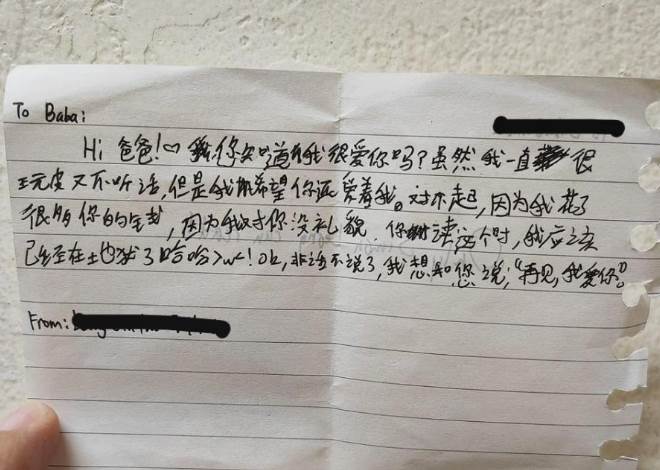 To Baba:
Hi 爸爸!♡ 你知道我很爱你吗?虽然我一直很
玩皮又不听话,但是我希望你还爱着我。对不起,因为我花了
很多你的钱,因为我对你没礼貌 你读这个时,我应该
已经在地狱了哈哈>w<! Ok,非话不说了,我想和您说;“再见,我爱你”。
From: